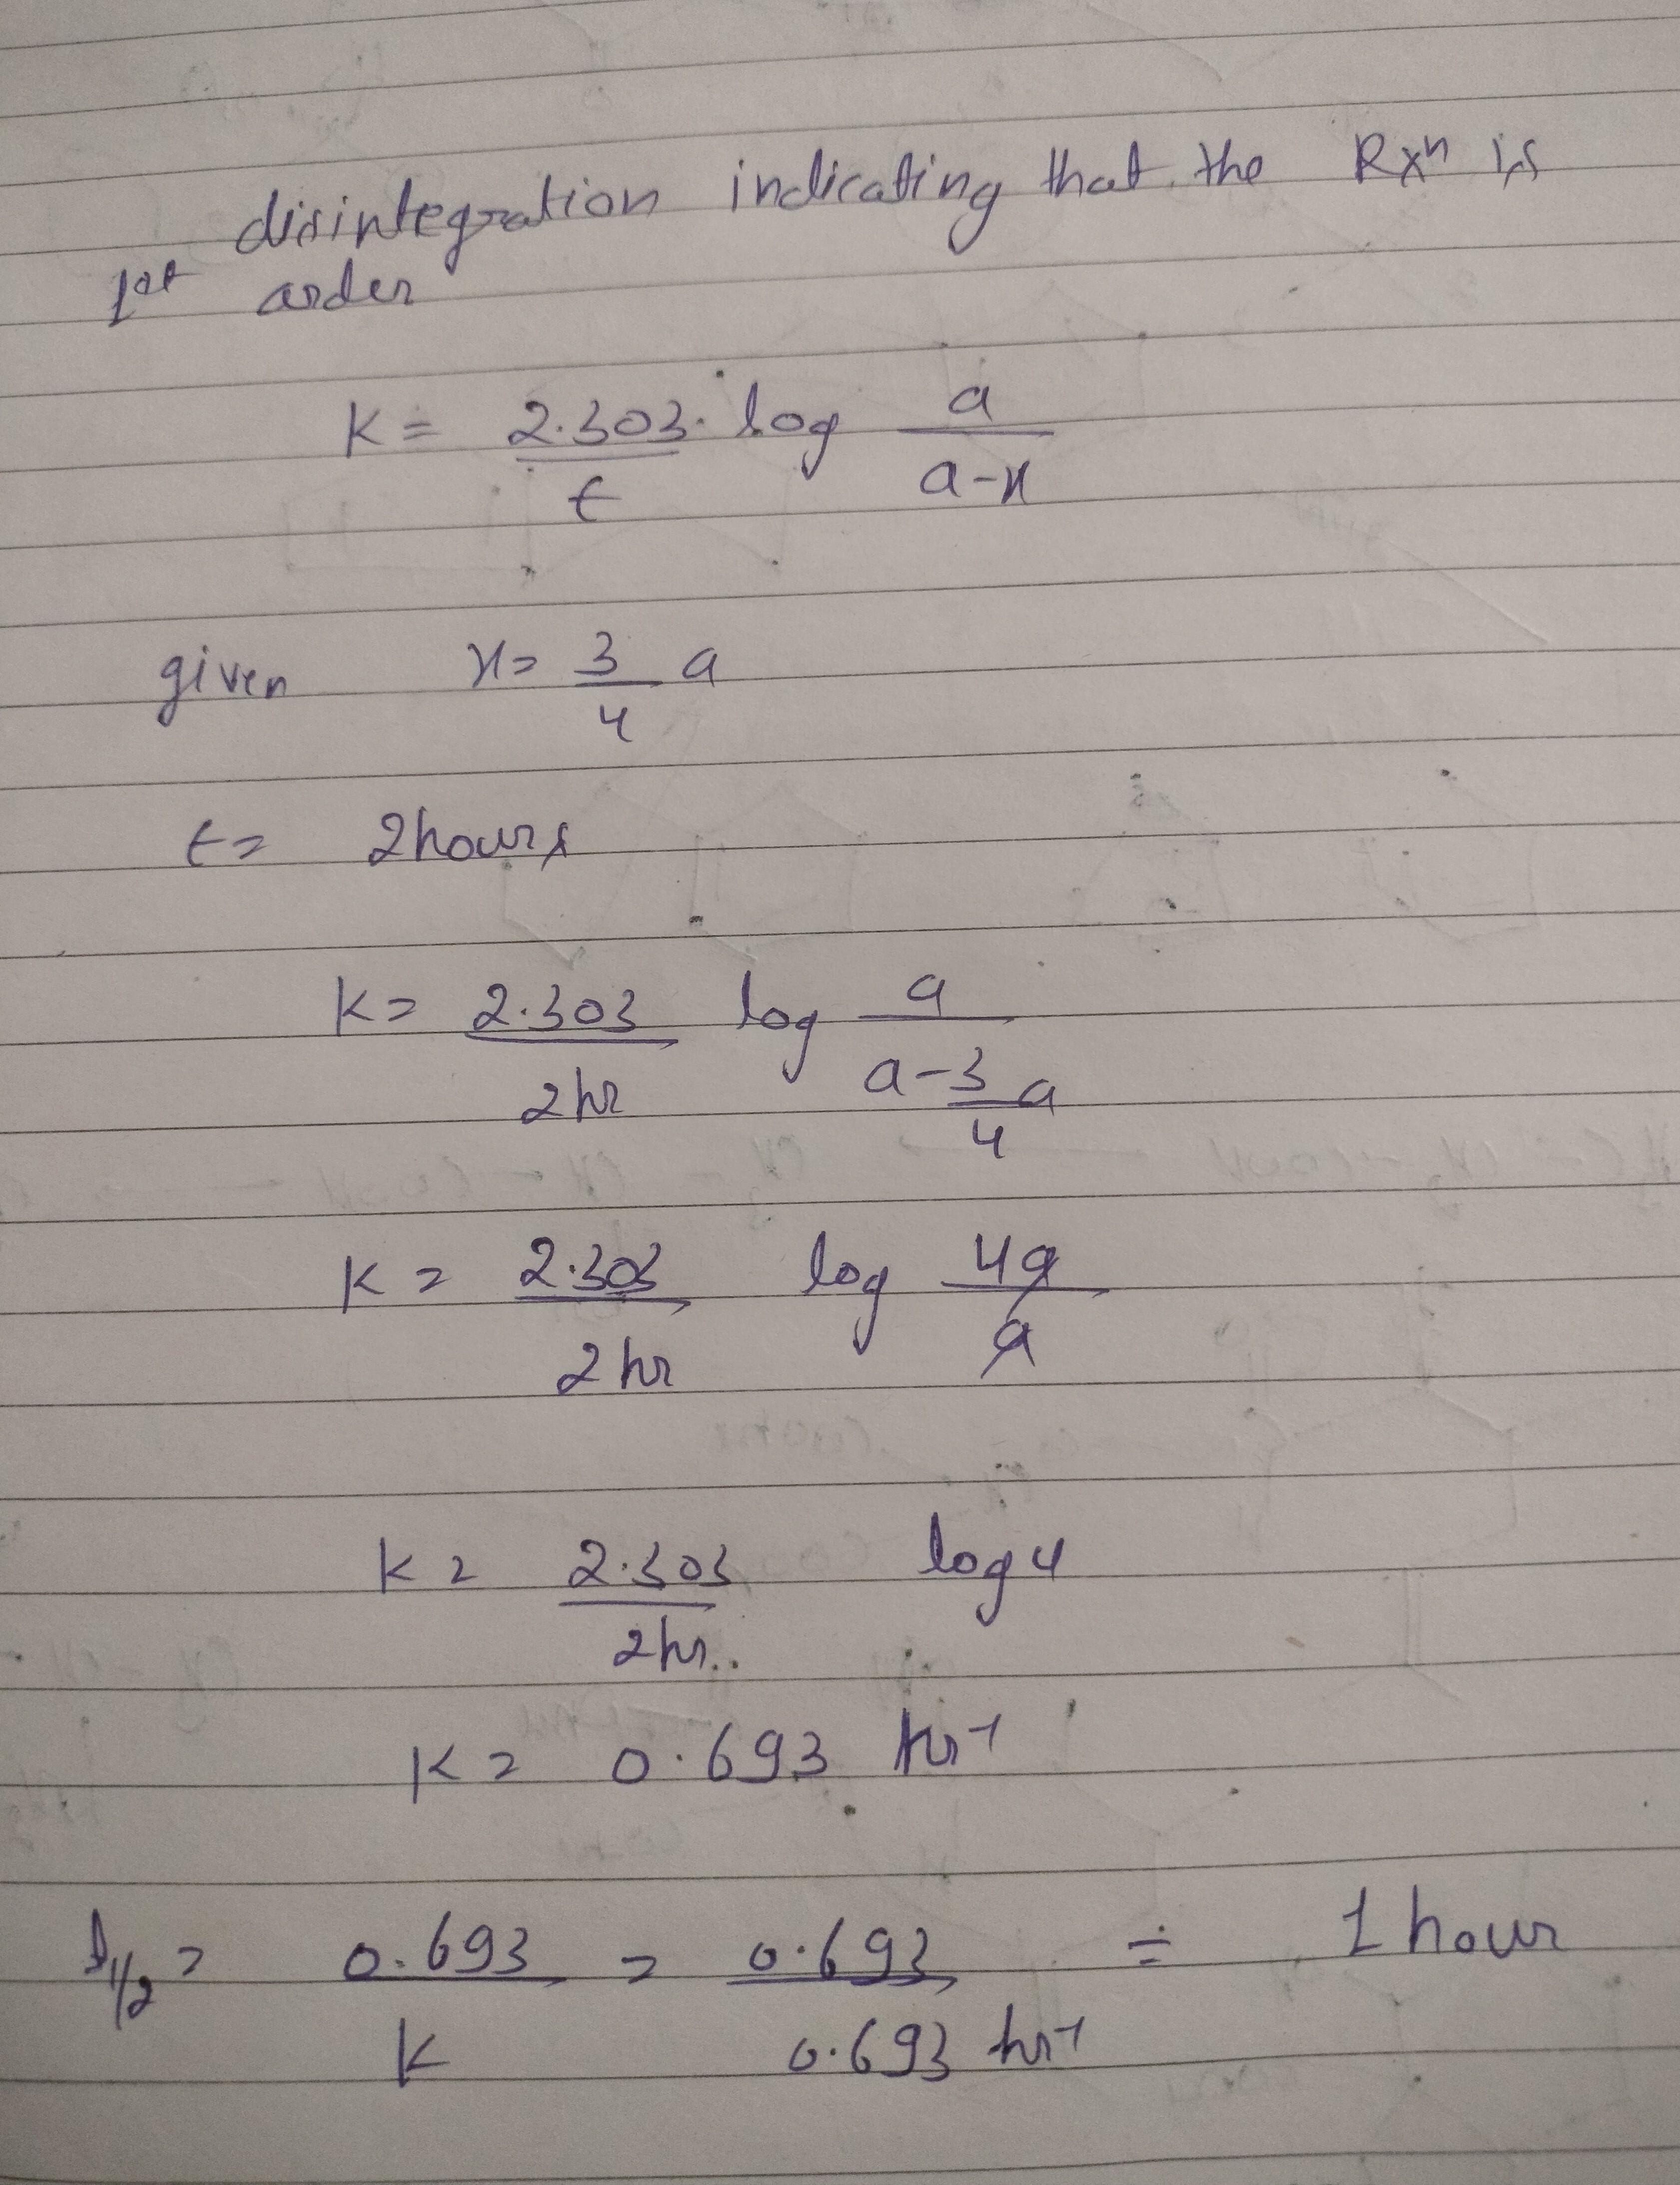 disintegration indicating that the Rxⁿ is
1st order
K = 2.303/t log a/a-x
given x = 3/4 a
t = 2hours
K = 2.303/2hr log a/a-3/4a
K = 2.303/2hr log 4a/a
K = 2.303/2hr.. log4
K = 0.693 hr⁻¹
t1/2 = 0.693/K = 0.693/0.693 hr⁻¹ = 1 hour